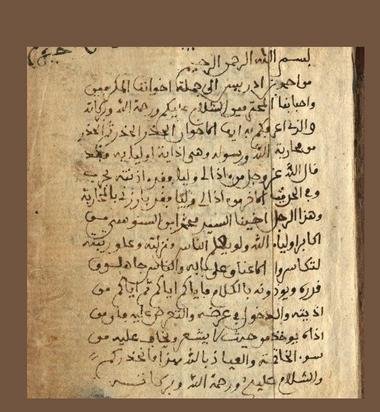 بسم الله الرحمن الرحيم
من احمد بن ادريس الى جملة اخواننا المكرمين
واحبابنا المحترمين السلام عليكم ورحمة الله وبركاته
والذي اعرفكم به ايها الاخوان الحذر الحذر ثم الحذر
من محاربة الله ورسوله وهي اذاية اوليايه فقد
قال الله عز وجل من اذى لي وليا فقد اذنته بحرب
وفي الحديث الاخر من اذى لي وليا فقد بارزني بالمحاربة
وهذا الرجل اخينا السيد محمد ابن السنوسي من
اكابر اولياء الله ولو يعلم الناس منزلته وعلو رتبته
لتكاسروا الاعناق على بابه والناس جاهلون
قدره ويوذونه بالكلام فاياكم اياكم ثم اياكم من
اذيته والدخول في عرضه والتعرض عليه فان من
اذاه يوخذ من حيث لا يشعر ويخاف عليه من
سوء الخاتمة والعياذ بالله من هذا فالحذركم
والسلام عليكم ورحمة الله وبركاته